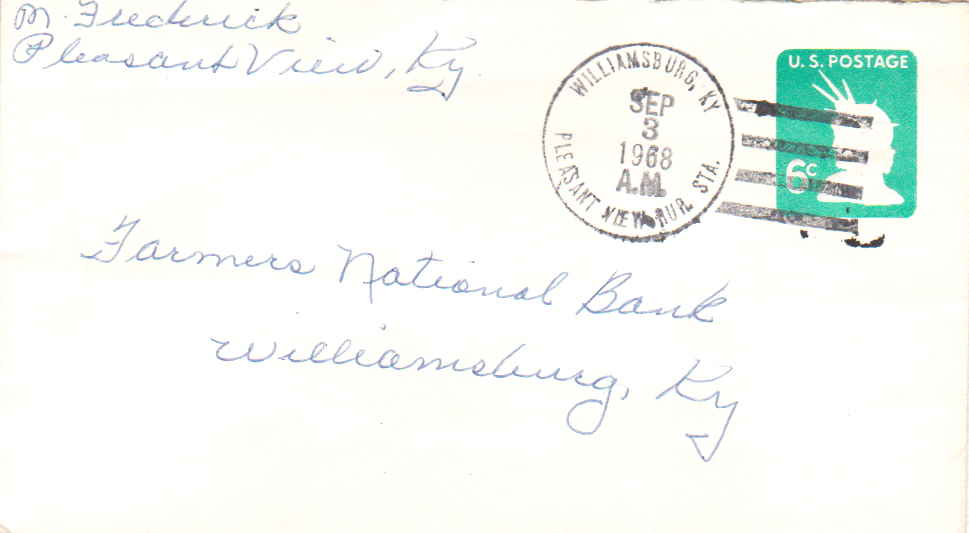 M. Frederick
Pleasant View, Ky.
WILLIAMSBURG, KY
SEP
3
1968
A.M.
PLEASANT VIEW RUR. STA.
U.S. POSTAGE
6c
Farmers National Bank
Williamsburg, Ky